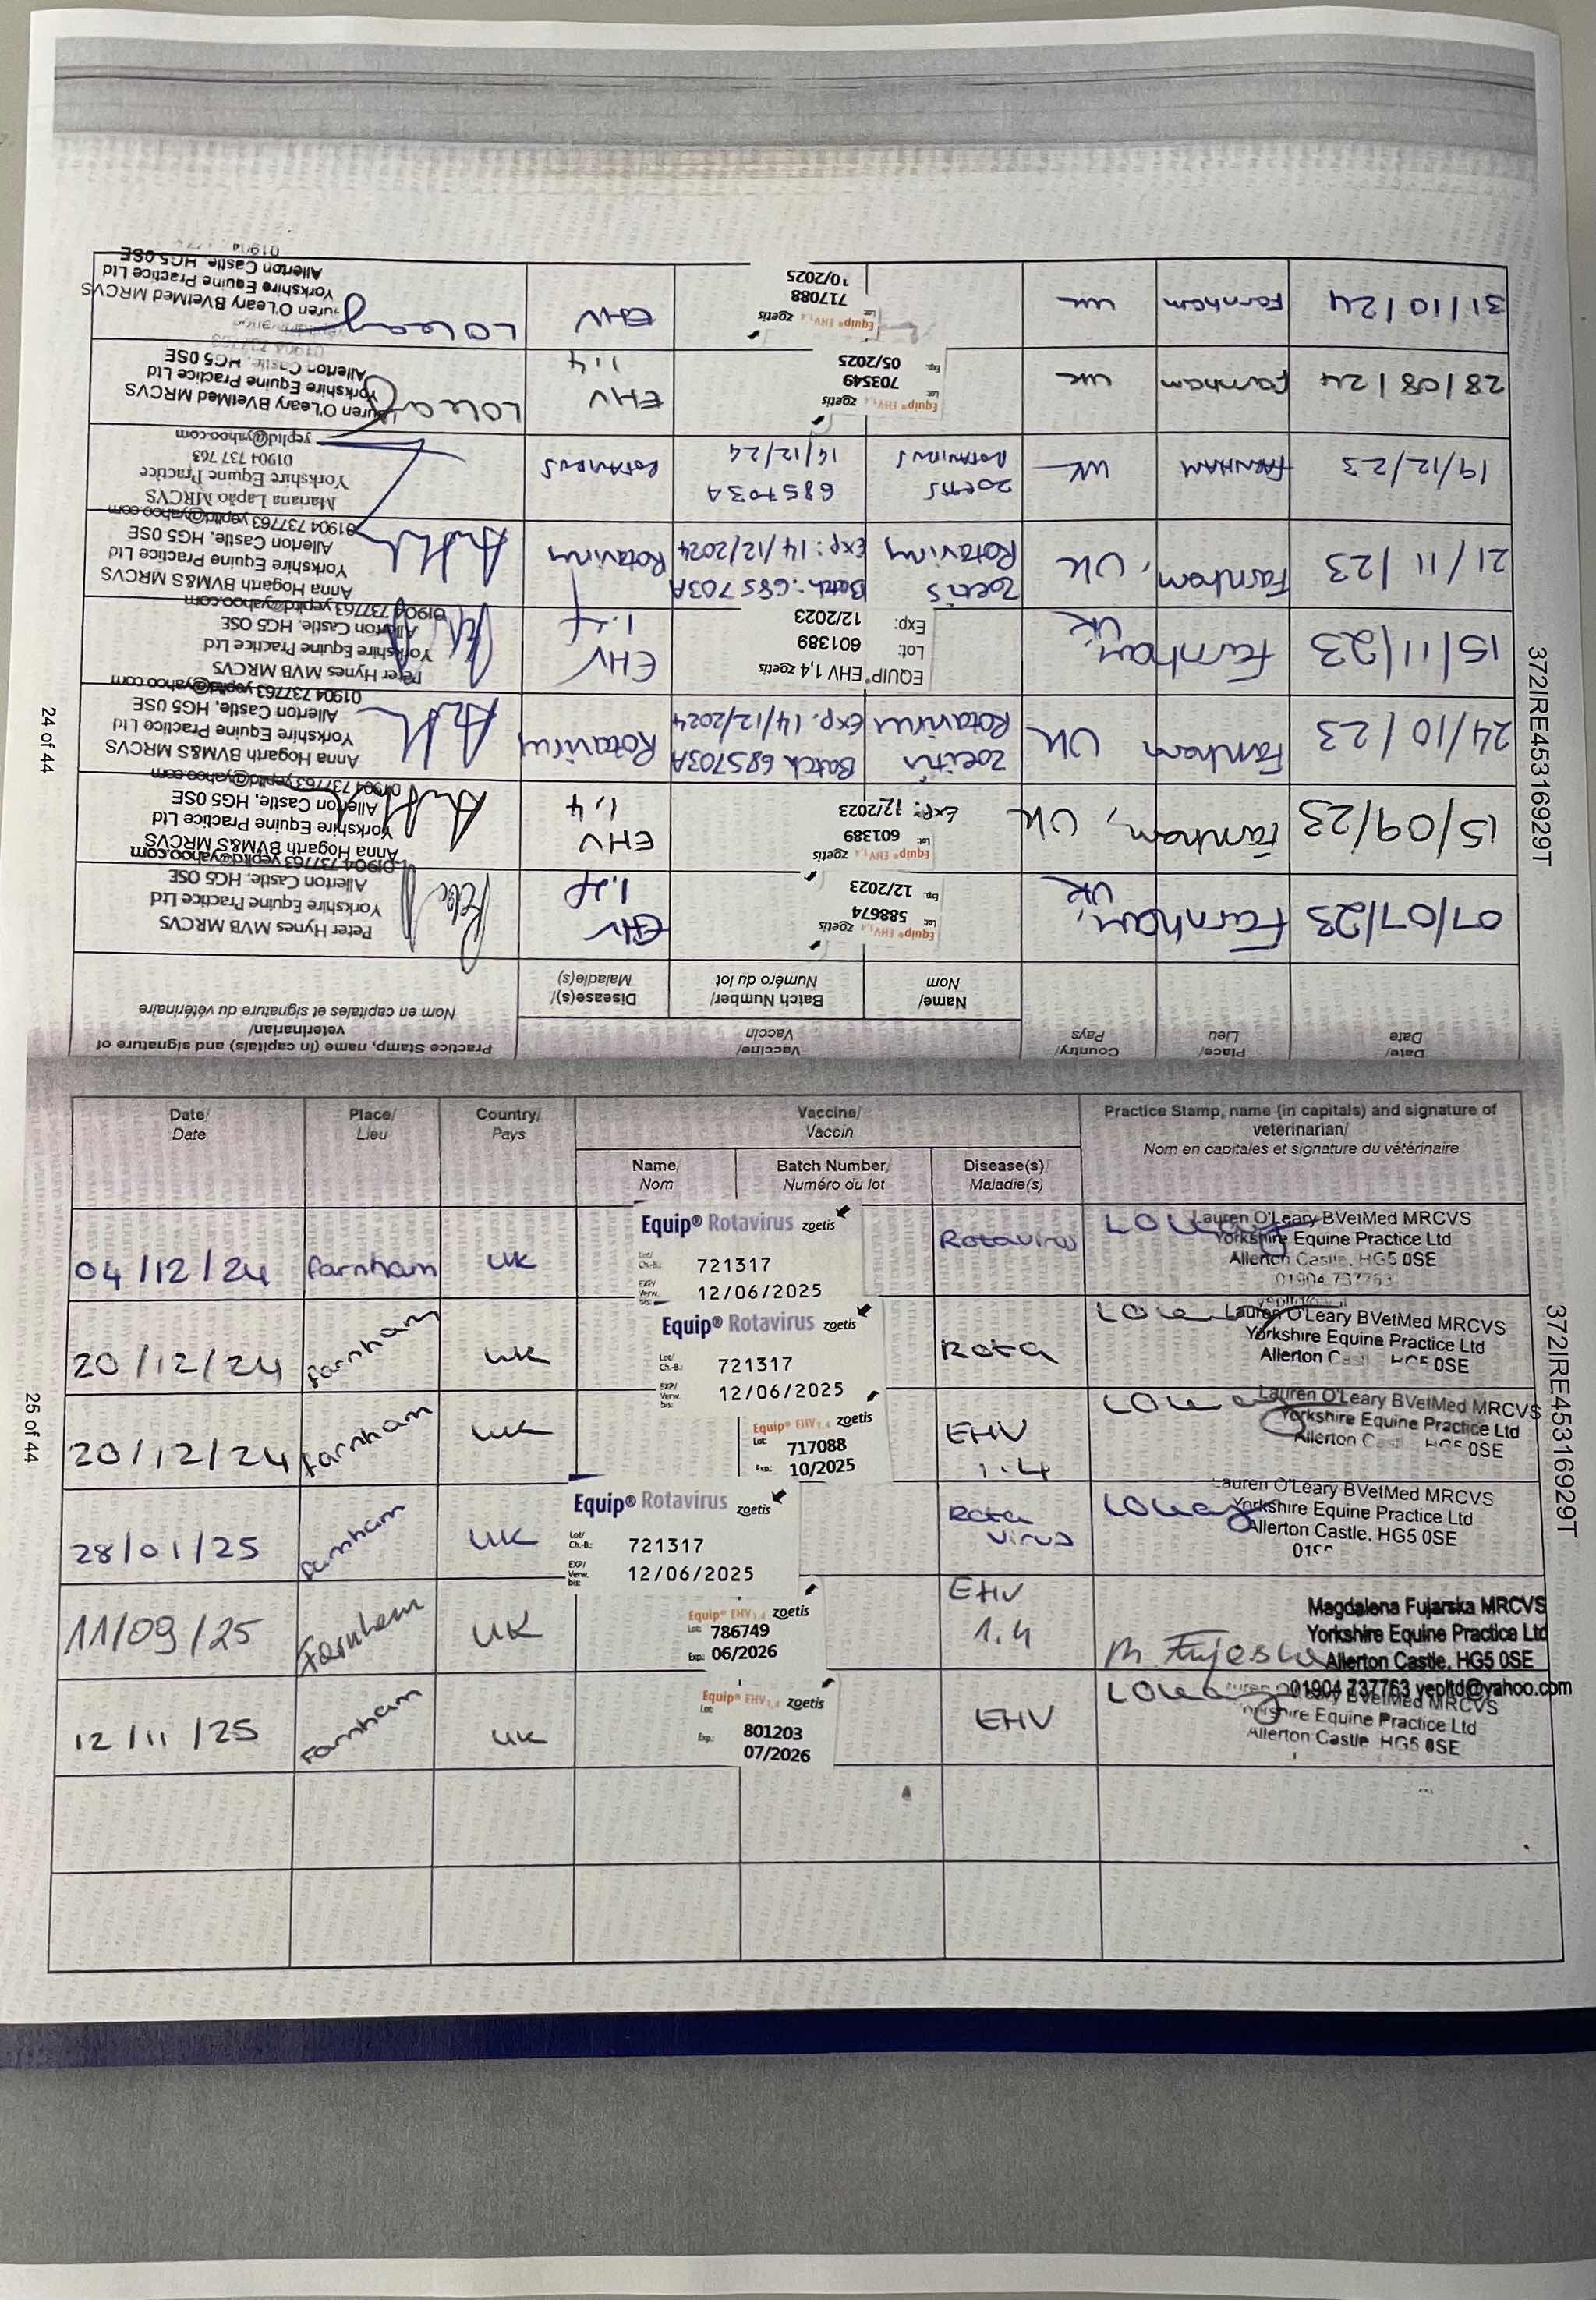 Date/
Date
Place/
Lieu
Country/
Pays
Vaccine/
Vaccin
Practice Stamp, name (in capitals) and signature of
veterinarian/
Nom en capitales et signature du vétérinaire
Name/
Nom
Batch Number/
Numéro du lot
Disease(s)/
Maladie(s)
07/07/23
Farnham,
UK
Equip® EHV 1,4 zoetis
Lot: 588674
Exp: 12/2023
EHV
1.4
Peter Hynes MVB MRCVS
Yorkshire Equine Practice Ltd
Allerton Castle, HG5 0SE
01904 737763 yepltd@yahoo.com
15/09/23
Farnham, UK
Equip® EHV 1,4 zoetis
Lot: 601389
Exp: 12/2023
EHV
1,4
Anna Hogarth BVM&S MRCVS
Yorkshire Equine Practice Ltd
Allerton Castle, HG5 0SE
01904 737763 yepltd@yahoo.com
24/10/23
Farnham
UK
Zoetis
Rotavirus
Batch 685703A
Exp. 14/12/2024
Rotavirus
Anna Hogarth BVM&S MRCVS
Yorkshire Equine Practice Ltd
Allerton Castle, HG5 0SE
01904 737763 yepltd@yahoo.com
15/11/23
Farnham,
UK
EQUIP® EHV 1,4 zoetis
Lot: 601389
Exp: 12/2023
EHV
1.4
Peter Hynes MVB MRCVS
Yorkshire Equine Practice Ltd
Allerton Castle, HG5 0SE
01904 737763 yepltd@yahoo.com
21/11/23
Farnham, UK
Zoetis
Rotavirus
Batch: 685703A
Exp: 14/12/2024
Rotavirus
Anna Hogarth BVM&S MRCVS
Yorkshire Equine Practice Ltd
Allerton Castle, HG5 0SE
01904 737763 yepltd@yahoo.com
19/12/23
FARNHAM
UK
ZOETIS
ROTAVIRUS
685703A
14/12/24
ROTAVIRUS
Mariana Lapão MRCVS
Yorkshire Equine Practice
01904 737 763
yepltd@yahoo.com
28/08/24
Farnham
UK
Equip® EHV 1,4 zoetis
Lot: 703549
Exp: 05/2025
EHV
1.4
LOLeary
Lauren O'Leary BVetMed MRCVS
Yorkshire Equine Practice Ltd
Allerton Castle, HG5 0SE
31/10/24
Farnham
UK
Equip® EHV 1,4 zoetis
Lot: 717088
10/2025
EHV
LOLeary
uren O'Leary BVetMed MRCVS
Yorkshire Equine Practice Ltd
Allerton Castle, HG5 0SE
372IRE45316929T
24 of 44
Date/
Date
Place/
Lieu
Country/
Pays
Vaccine/
Vaccin
Practice Stamp, name (in capitals) and signature of
veterinarian/
Nom en capitales et signature du vétérinaire
Name/
Nom
Batch Number/
Numéro du lot
Disease(s)/
Maladie(s)
04/12/24
Farnham
UK
Equip® Rotavirus zoetis
Lot/
Ch.-B.: 721317
EXP/
Verw.
bis: 12/06/2025
Rotavirus
LOLeary
Lauren O'Leary BVetMed MRCVS
Yorkshire Equine Practice Ltd
Allerton Castle, HG5 0SE
01904 737763
20/12/24
Farnham
UK
Equip® Rotavirus zoetis
Lot/
Ch.-B.: 721317
EXP/
Verw.
bis: 12/06/2025
Rota
LOLeary
Lauren O'Leary BVetMed MRCVS
Yorkshire Equine Practice Ltd
Allerton Castle HG5 0SE
20/12/24
Farnham
UK
Equip® EHV 1,4 zoetis
Lot: 717088
Exp.: 10/2025
EHV
1.4
LOLeary
Lauren O'Leary BVetMed MRCVS
Yorkshire Equine Practice Ltd
Allerton Castle HG5 0SE
28/01/25
Farnham
UK
Equip® Rotavirus zoetis
Lot/
Ch.-B.: 721317
EXP/
Verw.
bis: 12/06/2025
Rota
virus
LOLeary
Lauren O'Leary BVetMed MRCVS
Yorkshire Equine Practice Ltd
Allerton Castle, HG5 0SE
11/09/25
Farnham
UK
Equip® EHV 1,4 zoetis
Lot: 786749
Exp.: 06/2026
EHV
1.4
Magdalena Fujarska MRCVS
Yorkshire Equine Practice Ltd
Allerton Castle, HG5 0SE
01904 737763 yepltd@yahoo.com
12/11/25
Farnham
UK
Equip® EHV 1,4 zoetis
Lot: 801203
Exp.: 07/2026
EHV
LOLeary
Lauren O'Leary BVetMed MRCVS
Yorkshire Equine Practice Ltd
Allerton Castle HG5 0SE
372IRE45316929T
25 of 44